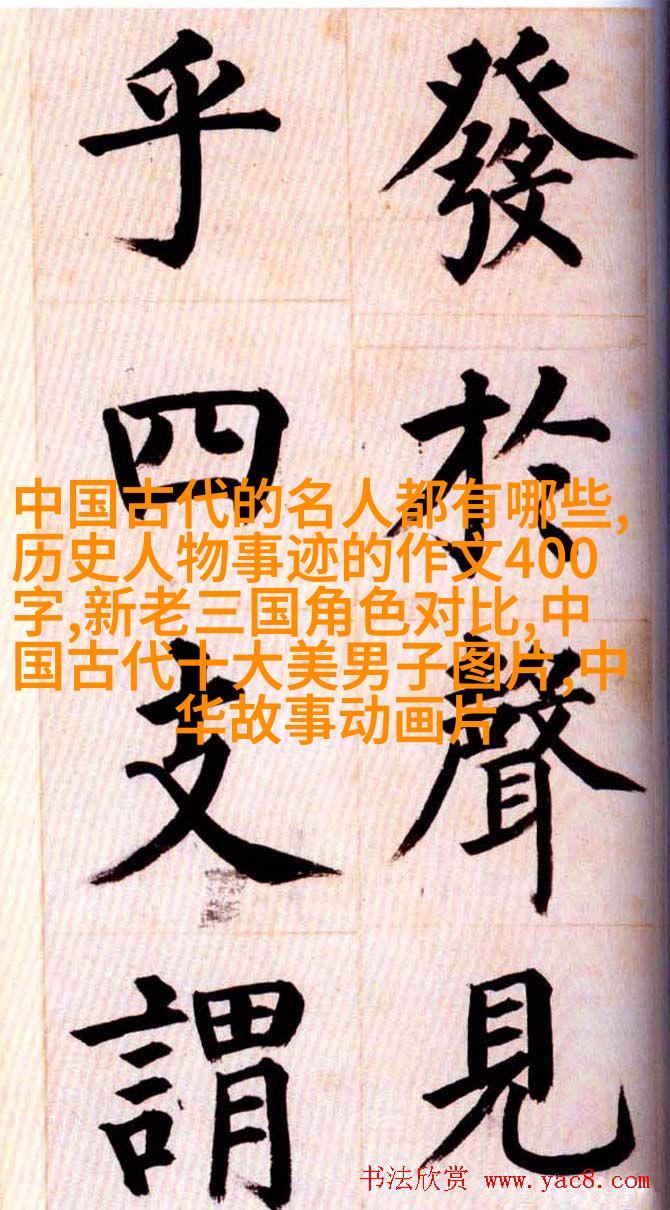 發於聲見
乎四支謂
中国古代的名人都有哪些,
历史人物事迹的作文400
字,新老三国角色对比,中
国古代十大美男子图片,中
华故事动画片
书法欣赏 www.yac8.com